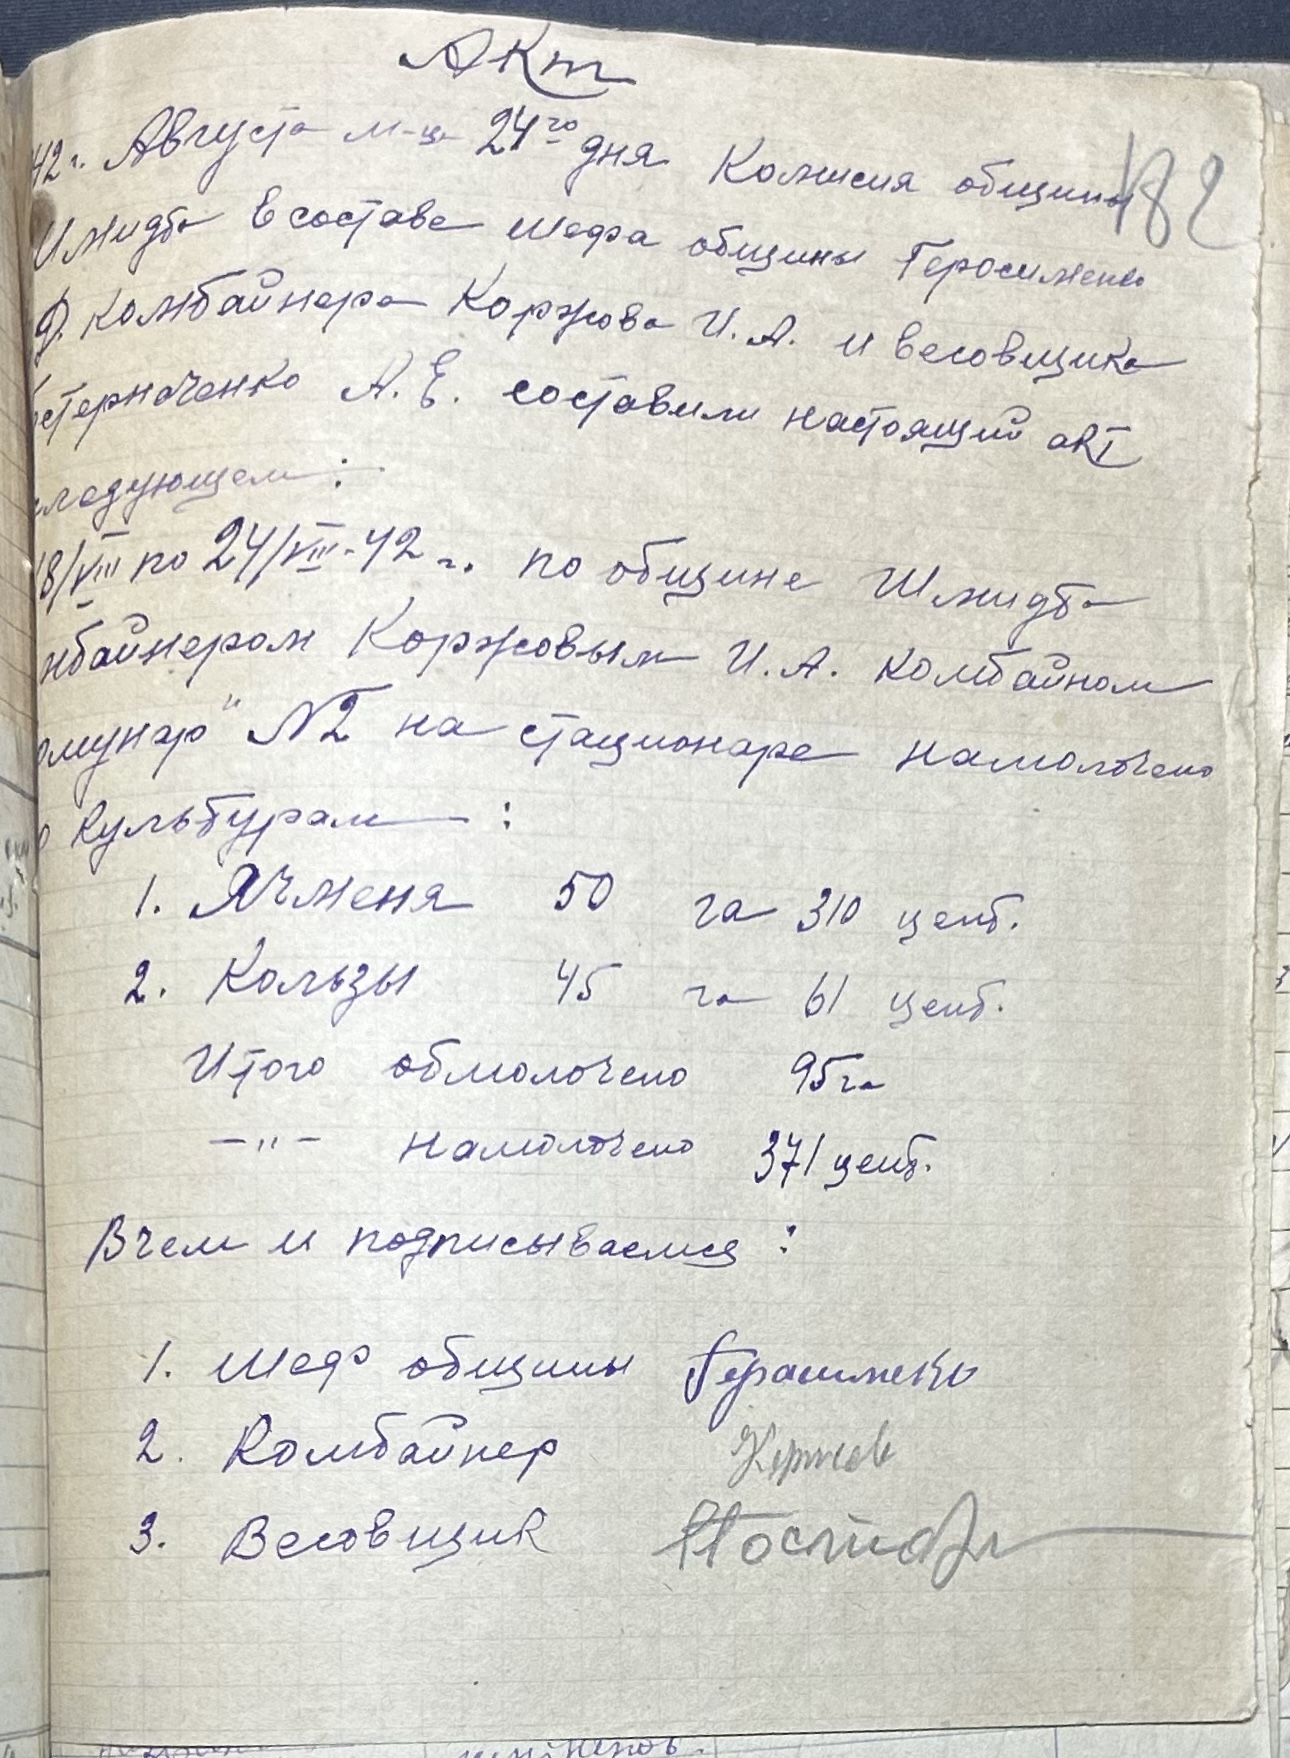 Акт
182
42 г. Августа м-ца 24го дня Комисия общины
Шмидта в составе шефа общины Геросименко
Ф. комбайнера Коржова И.А. и весовщика
стерначенко А.Е. составили настоящий акт
следующем:
18/VIII по 24/VIII-42 г. по общине Шмидта
мбайнером Коржовым И.А. комбайном
омунар" №2 на стационаре намолочено
о культурам:
1. Ячменя 50 га 310 цент.
2. Кользы 45 га 61 цент.
Итого обмолочено 95 га
—"— намолочено 371 цент.
В чем и подписываемся:
1. Шеф общины Герасименко
2. Комбайнер Коржов
3. Весовщик